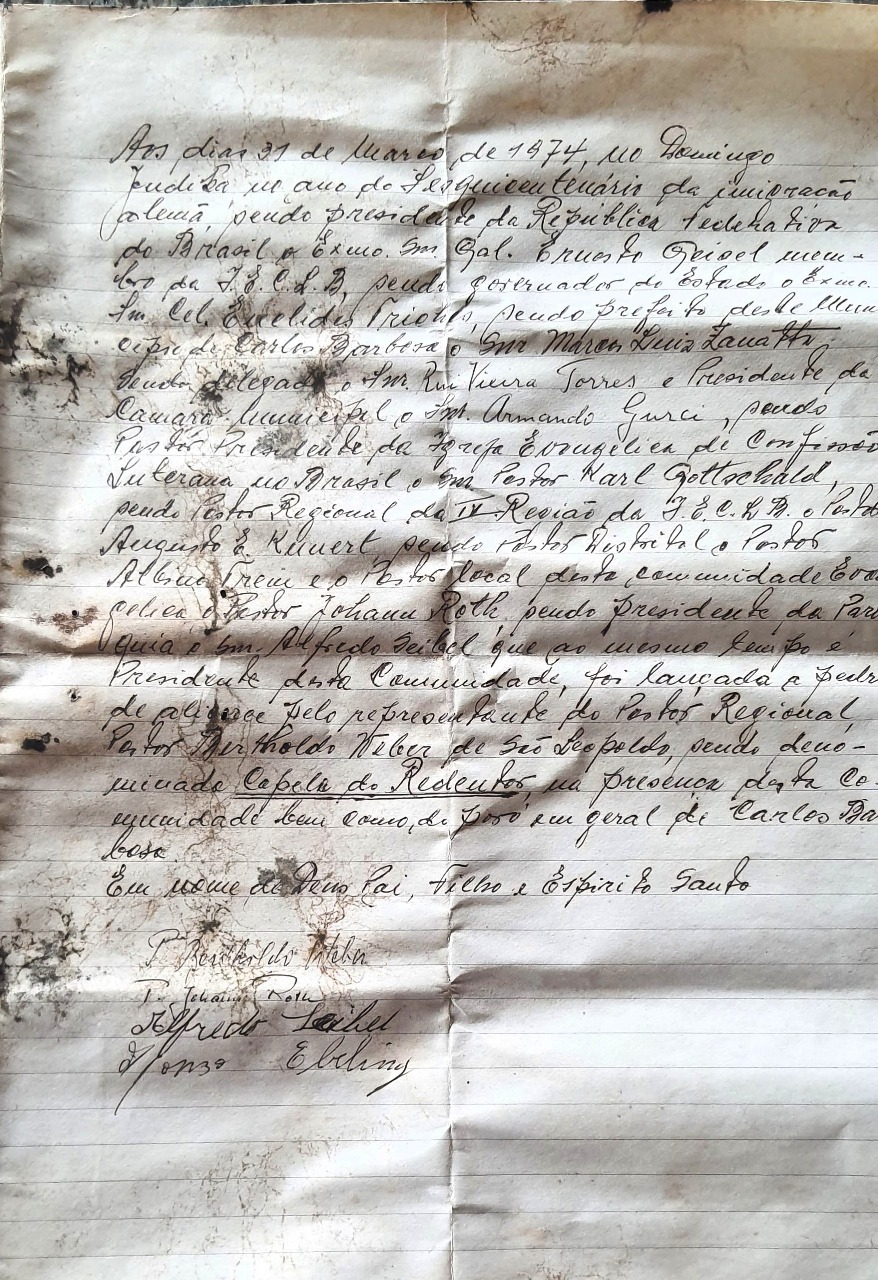 Aos dias 31 de Março de 1974, no Domingo
Judika no ano do Sesquicentenário da imigração
alemã, sendo presidente da República Federativa
do Brasil o Exmo. Snr. Gal. Ernesto Geisel mem-
bro da I.E.C.L.B, sendo governador do Estado o Exmo.
Snr Cel. Euclides Triches, sendo prefeito deste Muni
cipio de Carlos Barbosa o Snr. Marcos Luiz Zanatta,
sendo delegado o Snr. Rui Vieira Torres e Presidente da
Camara Municipal o Snr. Armando Gusci, sendo
Pastor Presidente da Igreja Evangélica de Confissão
Luterana no Brasil o Snr Pastor Karl Gottschald,
sendo Pastor Regional da IV Região da I.E.C.L.B. o Pastor
Augusto E. Kunert, sendo Pastor Distrital o Pastor
Albino Trein e o Pastor local desta comunidade Evan
gelica o Pastor Johann Roth, sendo presidente da Paro
quia o Snr. Alfredo Seibel que ao mesmo tempo é
Presidente desta Comunidade, foi lançada a pedra
de alicerce pelo representante do Pastor Regional,
Pastor Bertholdo Weber de São Leopoldo, sendo deno-
minada Capela do Redentor, na presença desta Co-
munidade bem como, do povo em geral de Carlos Bar
bosa.
Em nome de Deus Pai, Filho e Espirito Santo
P. Bertholdo Weber
P. Johann Roth
Alfredo Seibel
Ebeling